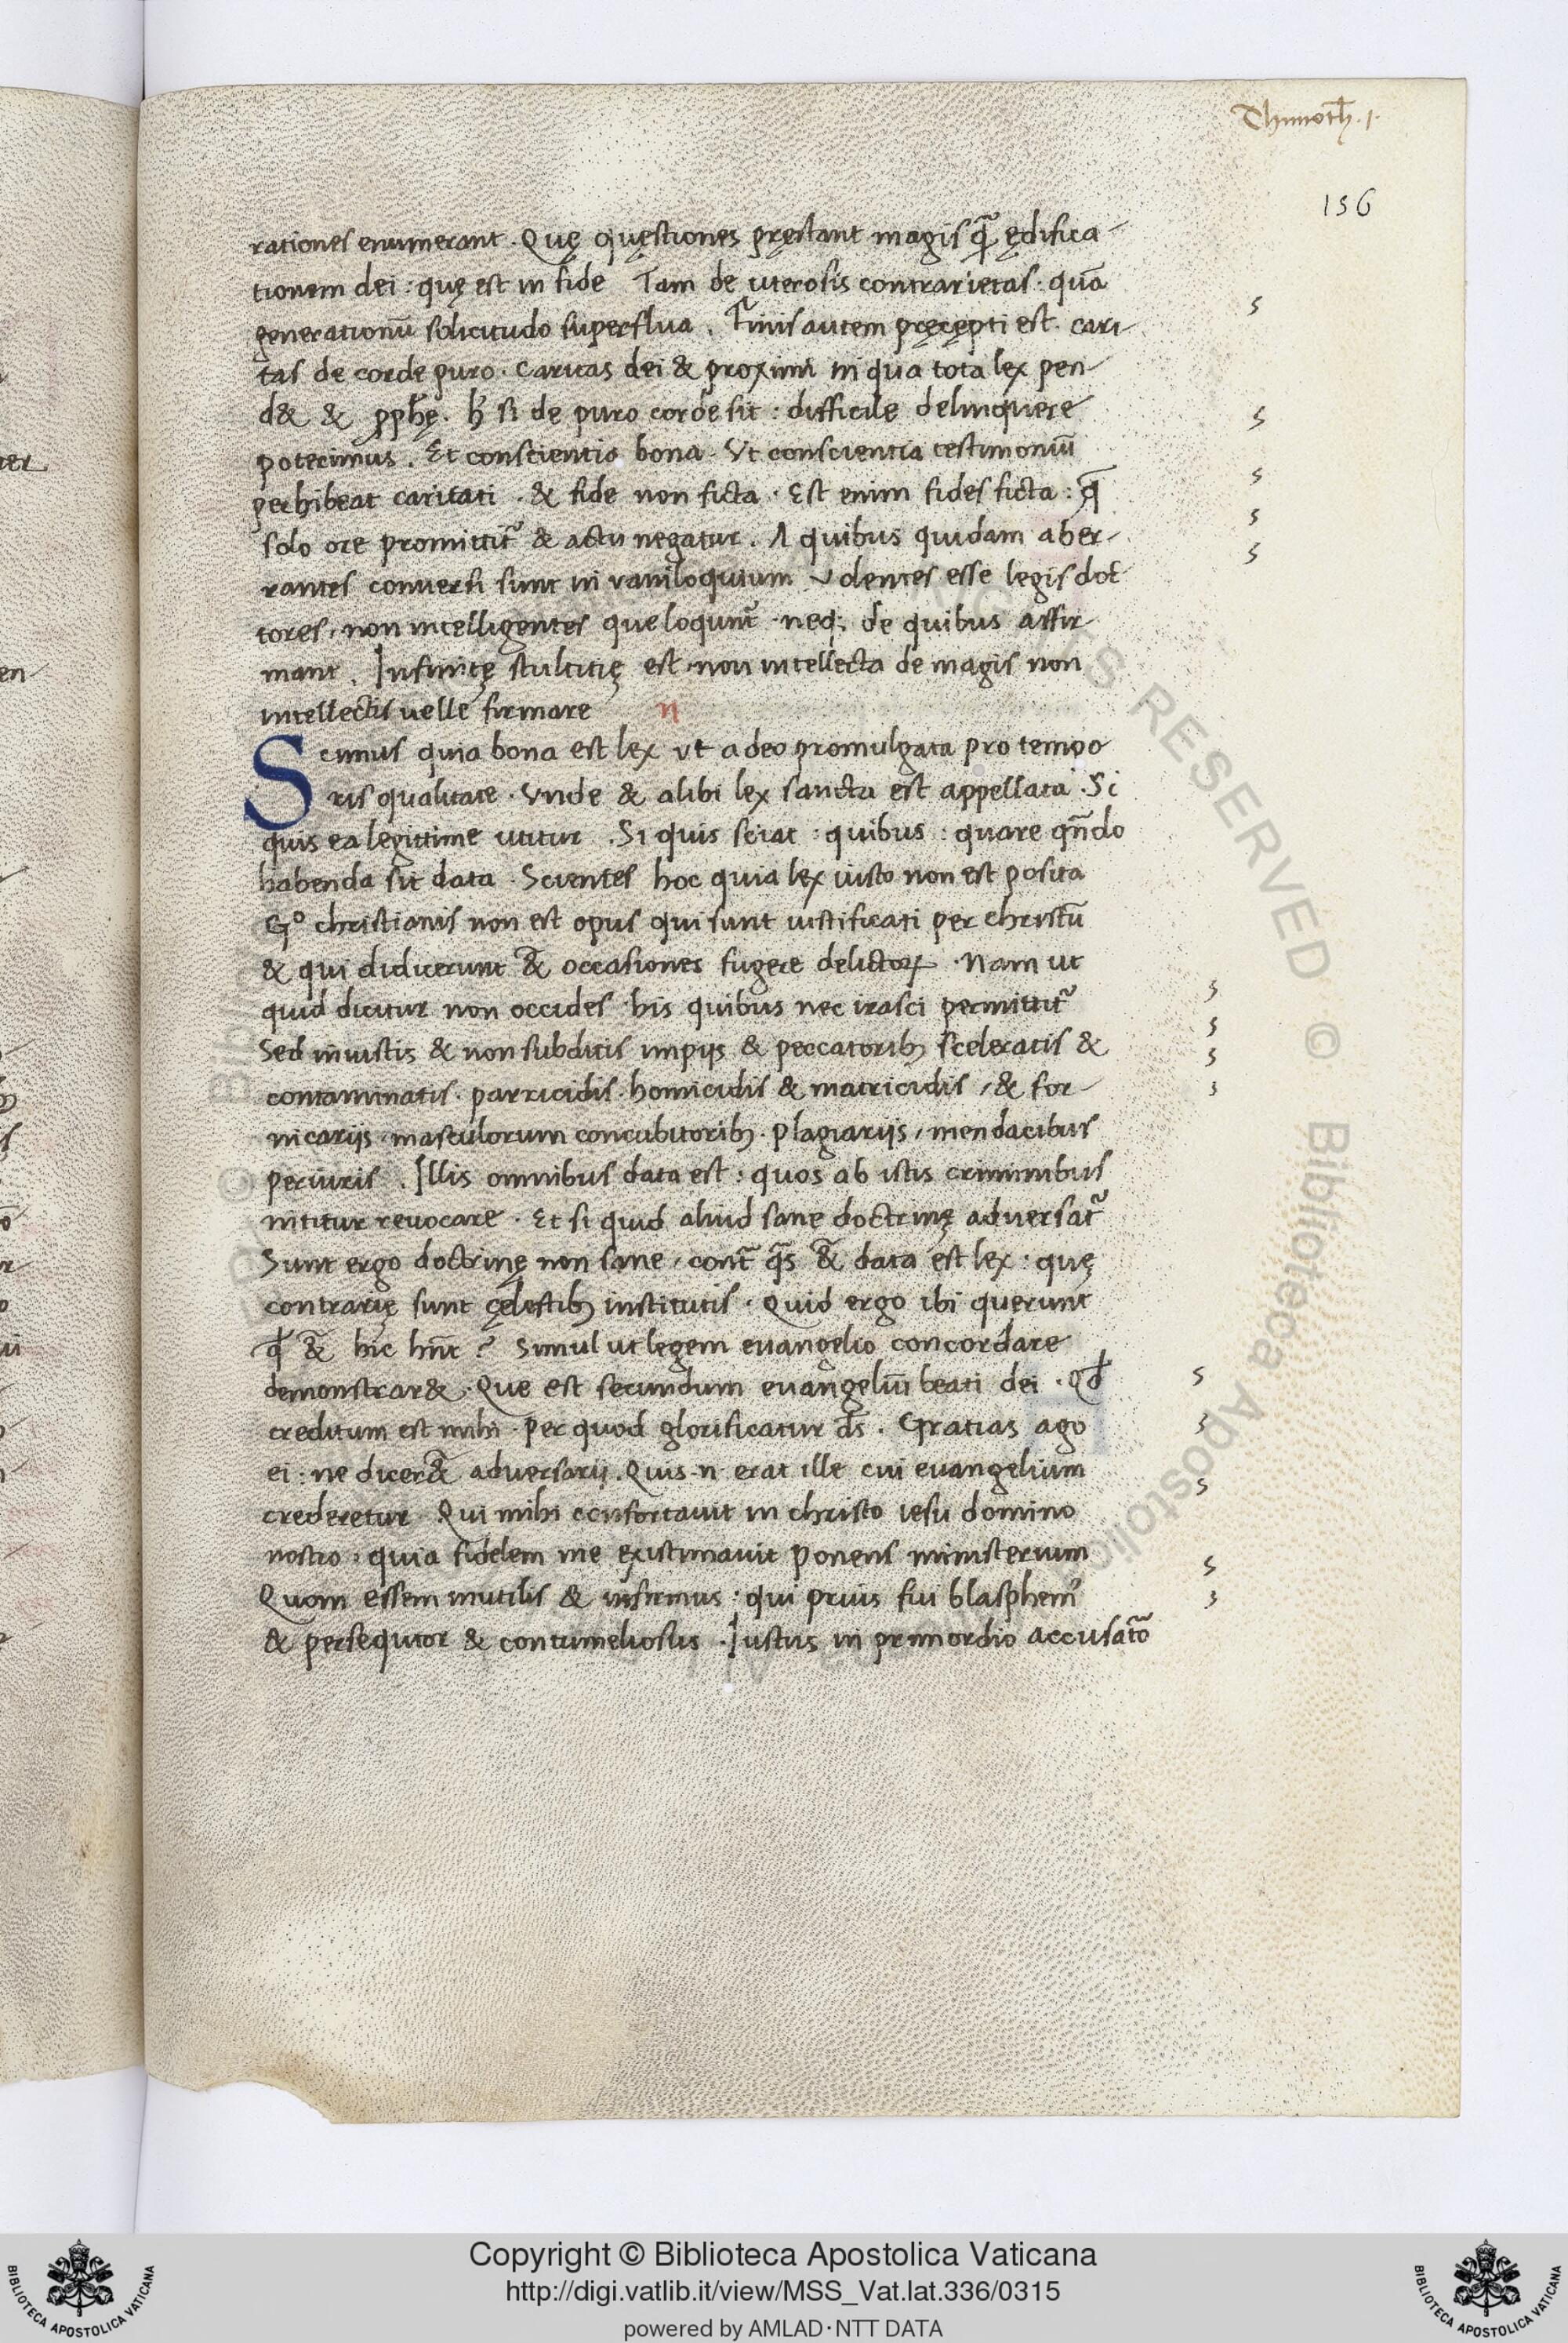 Thimoth̄. 1.
156
rationes enumerant. Quę quęstiones pręstant magis q̃ ędifica-
tionem dei: quę est in fide Tam de uterosis contrarietas. quā
generationū solicitudo superflua. Finis autem pręcępti est. cari-
tas de corde puro. caritas dei & proximi in qua tota lex pen-
d& & ꝓph̄ę. h̄ si de puro corde fit: difficile delinquere
poterimus. Et conscientia bona. Ut conscientia testimoniū
perhibeat caritati. & fide non ficta. Est enim fides ficta: q̄
solo ore promittit᷑ & actu negatur. A quibus quidam aber-
rantes conuersi sunt in vaniloquium v dentes esse legis doc̄
tores, non intelligentes que loqunt᷑. neq; de quibus affir
mant. Infinitę stultitię est non intellecta de magis non
intellectis uelle firmare n
Scimus quia bona est lex vt a deo promulgata pro tempo
ris qualitate. Vnde & alibi lex sancta est appellata. Si
quis ea legittime utitur. Si quis sciat: quibus: quare qñdo
habenda sit data. Scientes hoc quia lex iusto non est posita
Gº christianis non est opus qui sunt iustificati per christū
& qui didicerunt &̃ occasiones fugere delictoꝝ. Nam ut
quid dicitur non occides his quibus nec irasci permittit᷑
Sed iniustis & non subditis impijs & peccatorib; sceleratis &
contaminatis. parricidis. homicidis & matricidis, & for-
nicarijs. masculorum concubitorib;. plagiarijs, mendacibus
periuris. Illis omnibus data est: quos ab istis criminibus
nititur reuocare. Et si quid aliud sane doctrinę adversat᷑
Sunt ergo doctrinę non sane, cont᷑ q̃s &̃ data est lex: quę
contrarię sunt cęlestib; institutis. Quid ergo ibi querunt
qđ &̃ hic hn̄t? Simul ut legem euangelio concordare
demonstrar&. Que est secundum euangeliū beati dei. Qđ
creditum est mihi. per quod glorificatur d̄s. Gratias ago
ei: ne dicer&̃ adversarij. Quis. n. erat ille cui euangelium
crederetur Qui mihi confortauit in christo iesu domino
nostro, quia fidelem me existimauit ponens ministerium
Quom essem inutilis & infirmus: qui prius fui blasphem᷒
& persequtor & contumeliosus. Iustus in primordio accusat᷑o
Copyright © Biblioteca Apostolica Vaticana
http://digi.vatlib.it/view/MSS_Vat.lat.336/0315
powered by AMLAD·NTT DATA